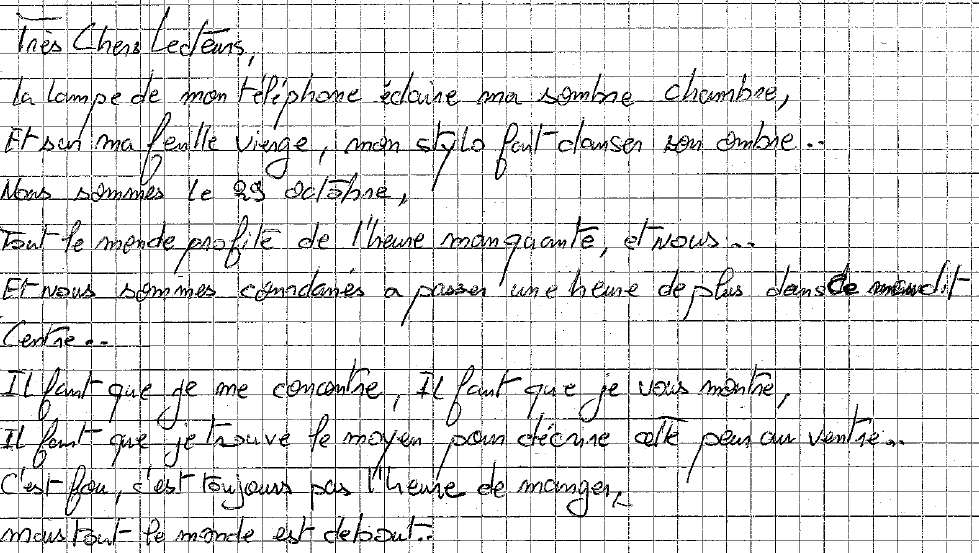 Très Chers Lecteurs,
la lampe de mon téléphone éclaire ma sombre chambre,
Et sur ma feuille vierge, mon stylo fait danser son ombre..
Nous sommes le 29 octobre,
Tout le monde profite de l'heure manquante, et nous...
Et nous sommes comdanés a passer une heure de plus dans ce maudit
Centre...
Il faut que je me concontre, Il faut que je vous montre,
Il faut que je trouve le moyen pour décrire cette peur au ventre...
C'est fou, c'est toujours pas l'heure de manger,
mais tout le monde est debout..